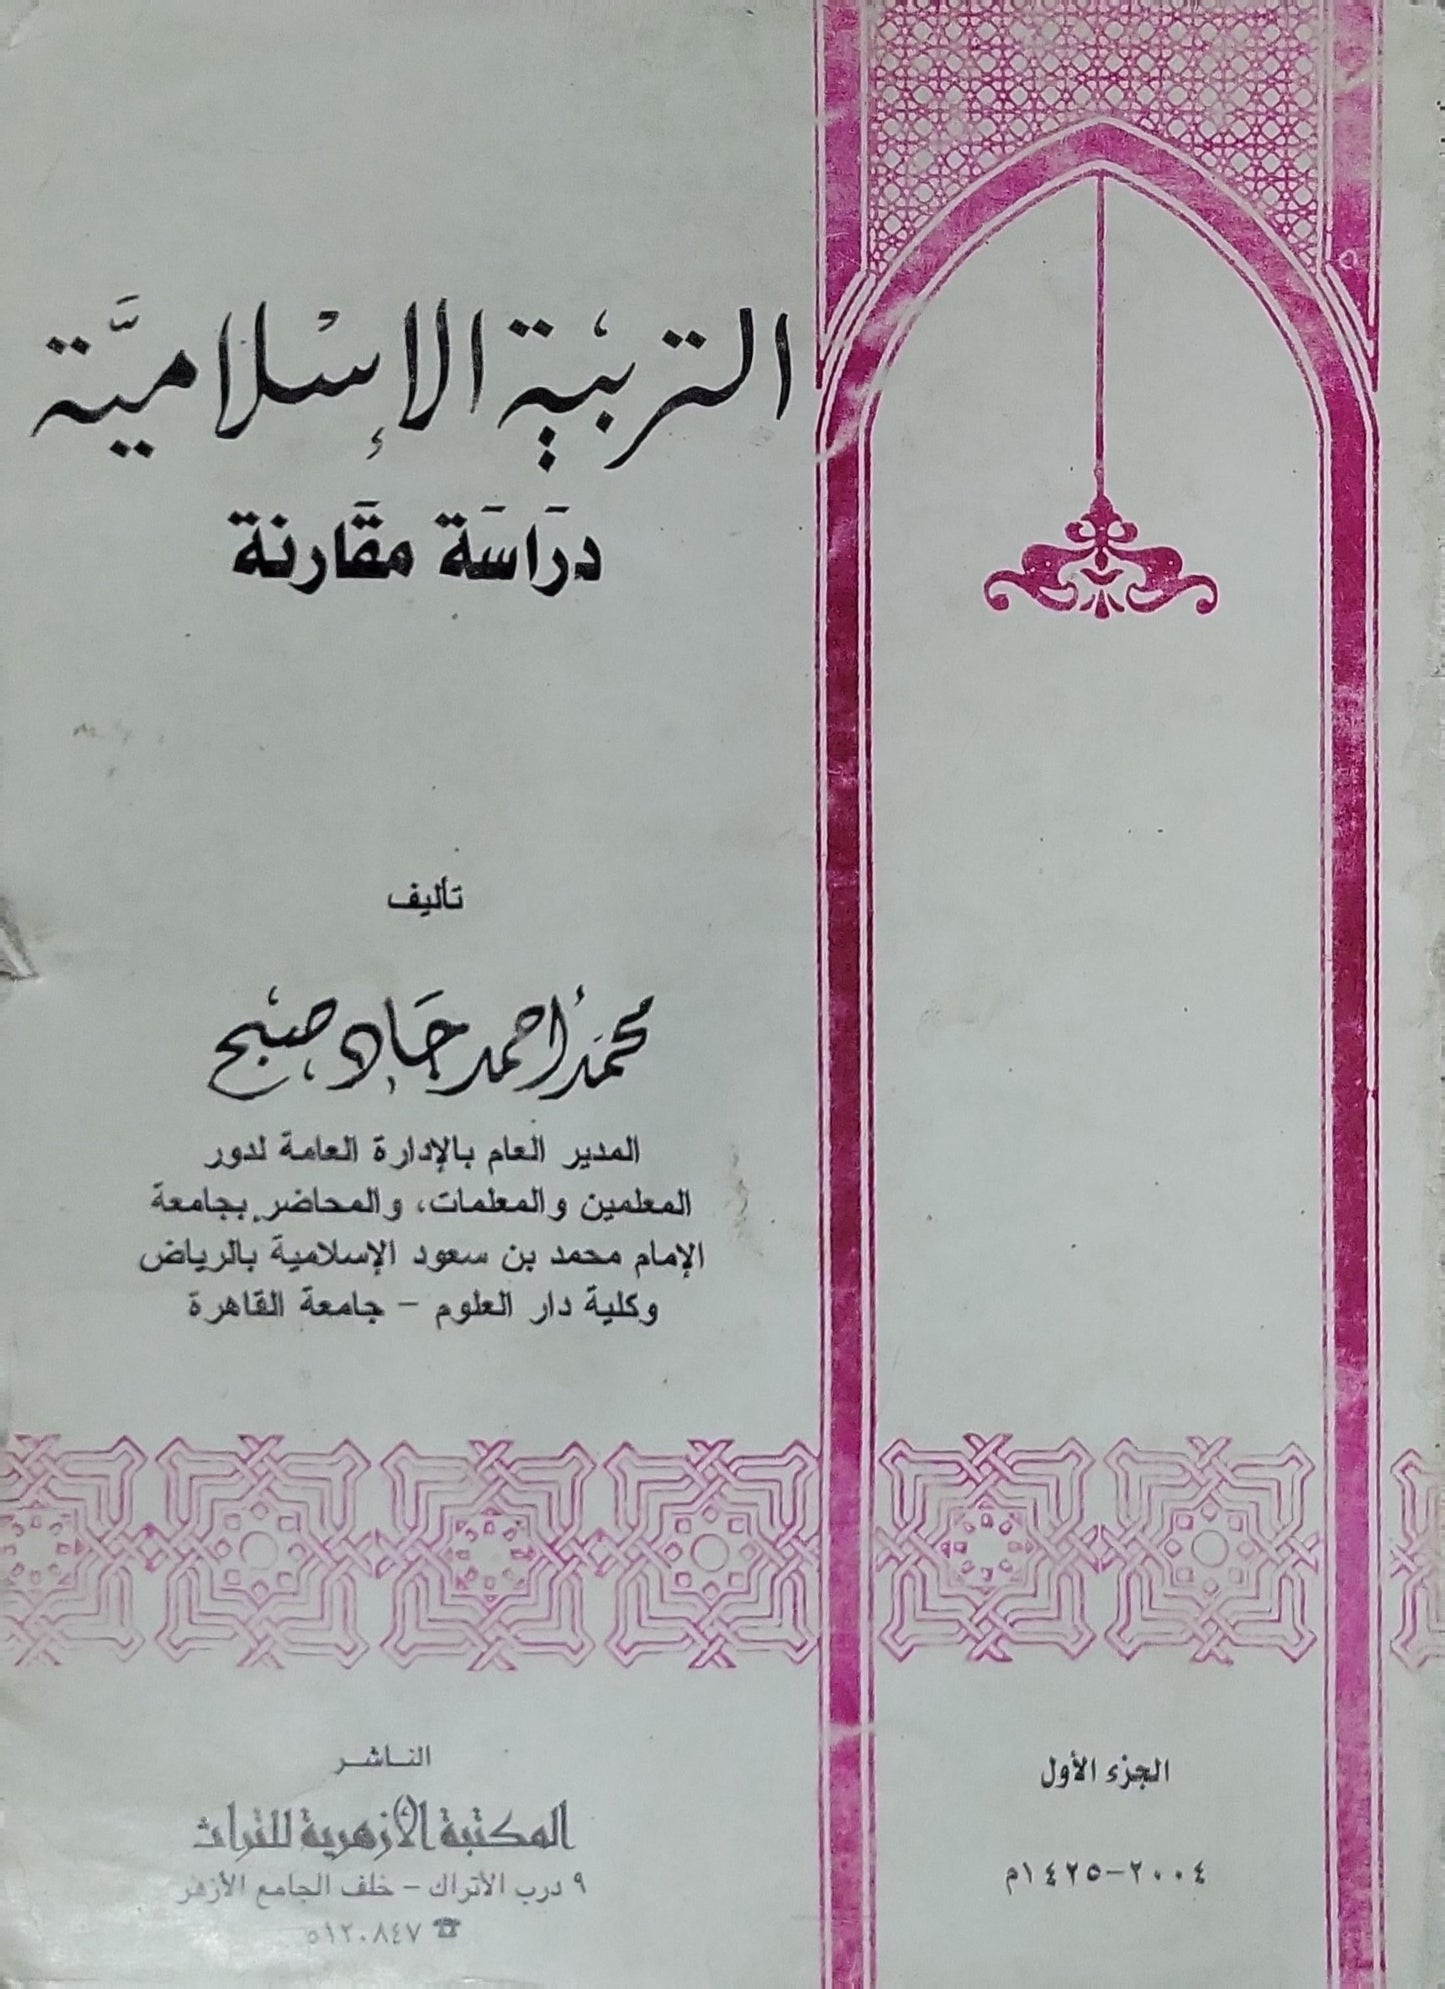 التربية الإسلامية
دراسة مقارنة
تأليف
محمد أحمد جاد صبح
المدير العام بالإدارة العامة لدور
المعلمين والمعلمات، والمحاضر بجامعة
الإمام محمد بن سعود الإسلامية بالرياض
وكلية دار العلوم - جامعة القاهرة
الجزء الأول
٢٠٠٤-١٤٢٥م
الناشر
المكتبة الأزهرية للتراث
٩ درب الأتراك - خلف الجامع الأزهر
☎ ٥١٢٠٨٤٧